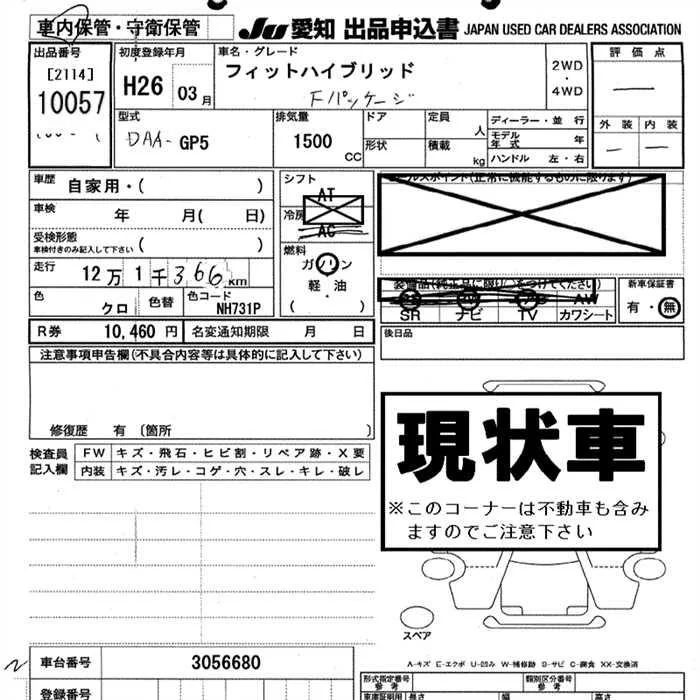 車内保管・守衛保管
JU 愛知 出品申込書 JAPAN USED CAR DEALERS ASSOCIATION
出品番号
[2114]
10057
初度登録年月
H26 03月
車名・グレード
フィットハイブリッド
Fパッケージ
2WD
・
4WD
評価点
外装 内装
型式
DAA- GP5
排気量
1500
CC
ドア
形状
定員
人
積載
kg
ディーラー・並 行
モデル年式 年
ハンドル 左・右
車歴 自家用・( )
車検 年 月( 日)
受検形態
車検付きのみ記入して下さい ( )
走行 12万1千366km
色 クロ 色替 色コード NH731P
シフト
AT
冷房
AC
燃料
ガソリン
軽・油
( )
セールスポイント(正常に機能するものに限ります)
装備品(純正品に限り○をつけてください)
AW
SR ナビ TV カワシート
新車保証書
有・無
R券 10,460円 名変通知期限 月 日
後日品
注意事項申告欄(不具合内容等は具体的に記入して下さい)
修復歴 有 〔箇所
検査員
記入欄
FW キズ・飛石・ヒビ割・リペア跡・X要
内装 キズ・汚レ・コゲ・穴・スレ・キレ・破レ
現状車
※このコーナーは不動車も含み
ますのでご注意下さい
スペア
A-キズ E-エクボ U-凹み W-補修跡 S-サビ C-腐食 XX-交換済
車台番号 3056680
登録番号
形式指定番号
参考
類別区分番号
参考
車庫証明用 長さ
参考
幅
高さ